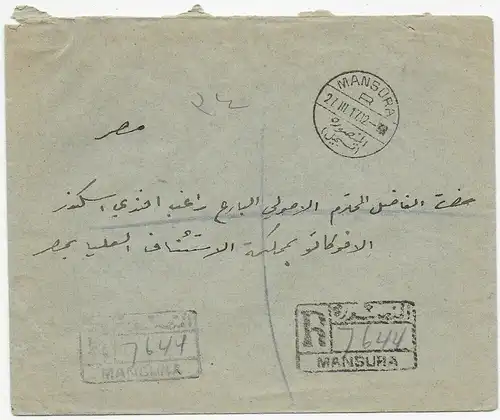 MANSURA
R
27.III.17.12-
المنصورة
(تسجيل)
٩٤
مصر
حضرة الفاضل المحترم الاصولي البارع راغب افندي اسكندر
الافوكاتو بمحكمة الاستئناف العليا بمصر
R
7644
MANSURA
R المنصورة
7644
MANSURA